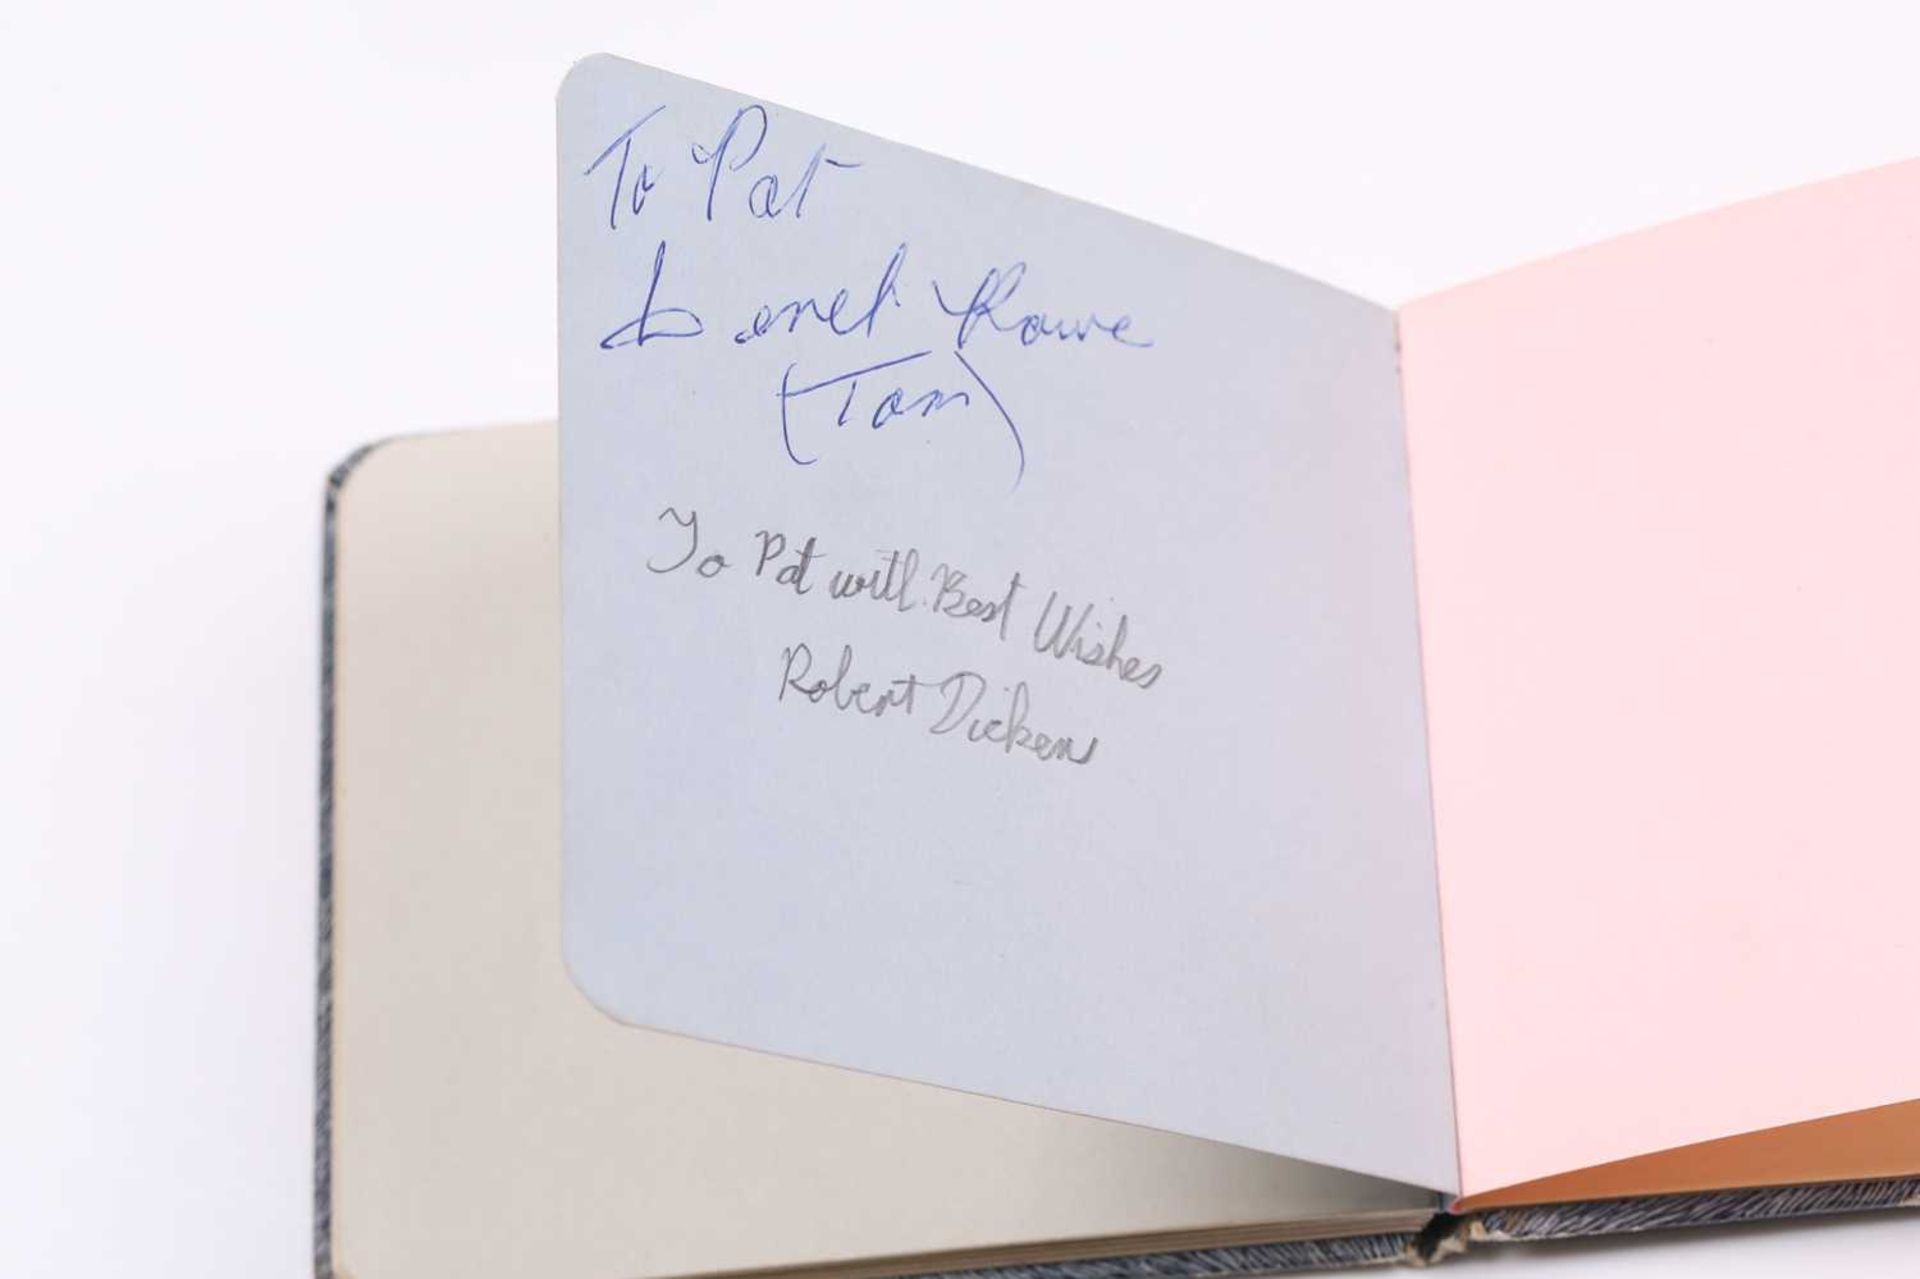 To Pat
Rowe
(Tom)
To Pat with Best Wishes
Robert Dicken